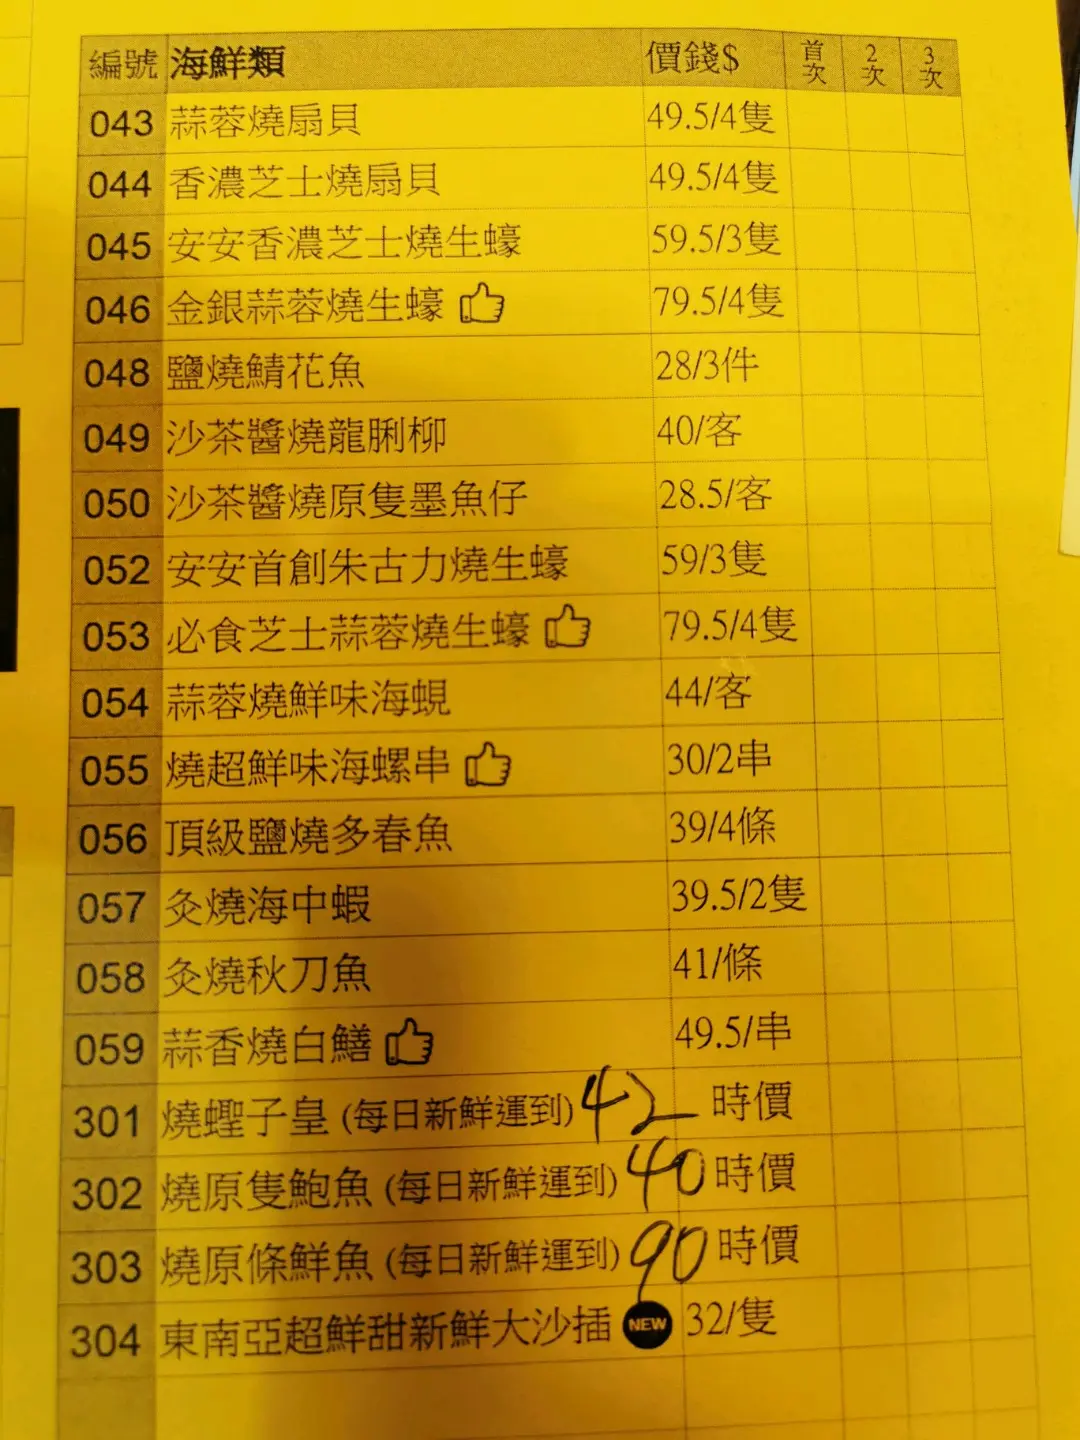 編號 海鮮類 價錢$ 首次 2次 3次
043 蒜蓉燒扇貝 49.5/4隻
044 香濃芝士燒扇貝 49.5/4隻
045 安安香濃芝士燒生蠔 59.5/3隻
046 金銀蒜蓉燒生蠔 79.5/4隻
048 鹽燒鯖花魚 28/3件
049 沙茶醬燒龍脷柳 40/客
050 沙茶醬燒原隻墨魚仔 28.5/客
052 安安首創朱古力燒生蠔 59/3隻
053 必食芝士蒜蓉燒生蠔 79.5/4隻
054 蒜蓉燒鮮味海蜆 44/客
055 燒超鮮味海螺串 30/2串
056 頂級鹽燒多春魚 39/4條
057 灸燒海中蝦 39.5/2隻
058 灸燒秋刀魚 41/條
059 蒜香燒白鱔 49.5/串
301 燒蟶子皇 (每日新鮮運到) 42 時價
302 燒原隻鮑魚 (每日新鮮運到) 40 時價
303 燒原條鮮魚 (每日新鮮運到) 90 時價
304 東南亞超鮮甜新鮮大沙插 NEW 32/隻